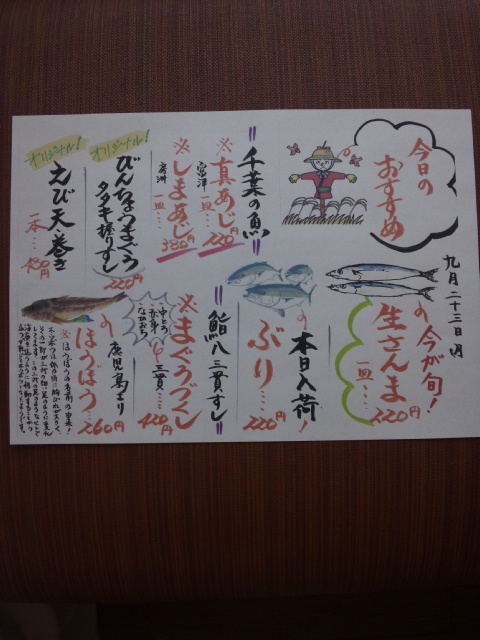 今日の
おすすめ
九月二十三日
今が旬!
生さんま
一皿・・・
220円
本日入荷!
ぶり・・・
220円
"千葉の魚"
※真あじ
富津
一皿・・・
220円
※しまあじ
一皿・・・
380円
"鮨八三貫すし"
※まぐろづくし
三貫・・・
420円
中とろ
赤身
オリジナル!
びんちょうまぐろ
タタキ握りすし
220円
鹿児島より
ほうぼう・・・
260円
オリジナル!
えび天巻き
一本・・・
480円
※ほうぼうの名前の由来!